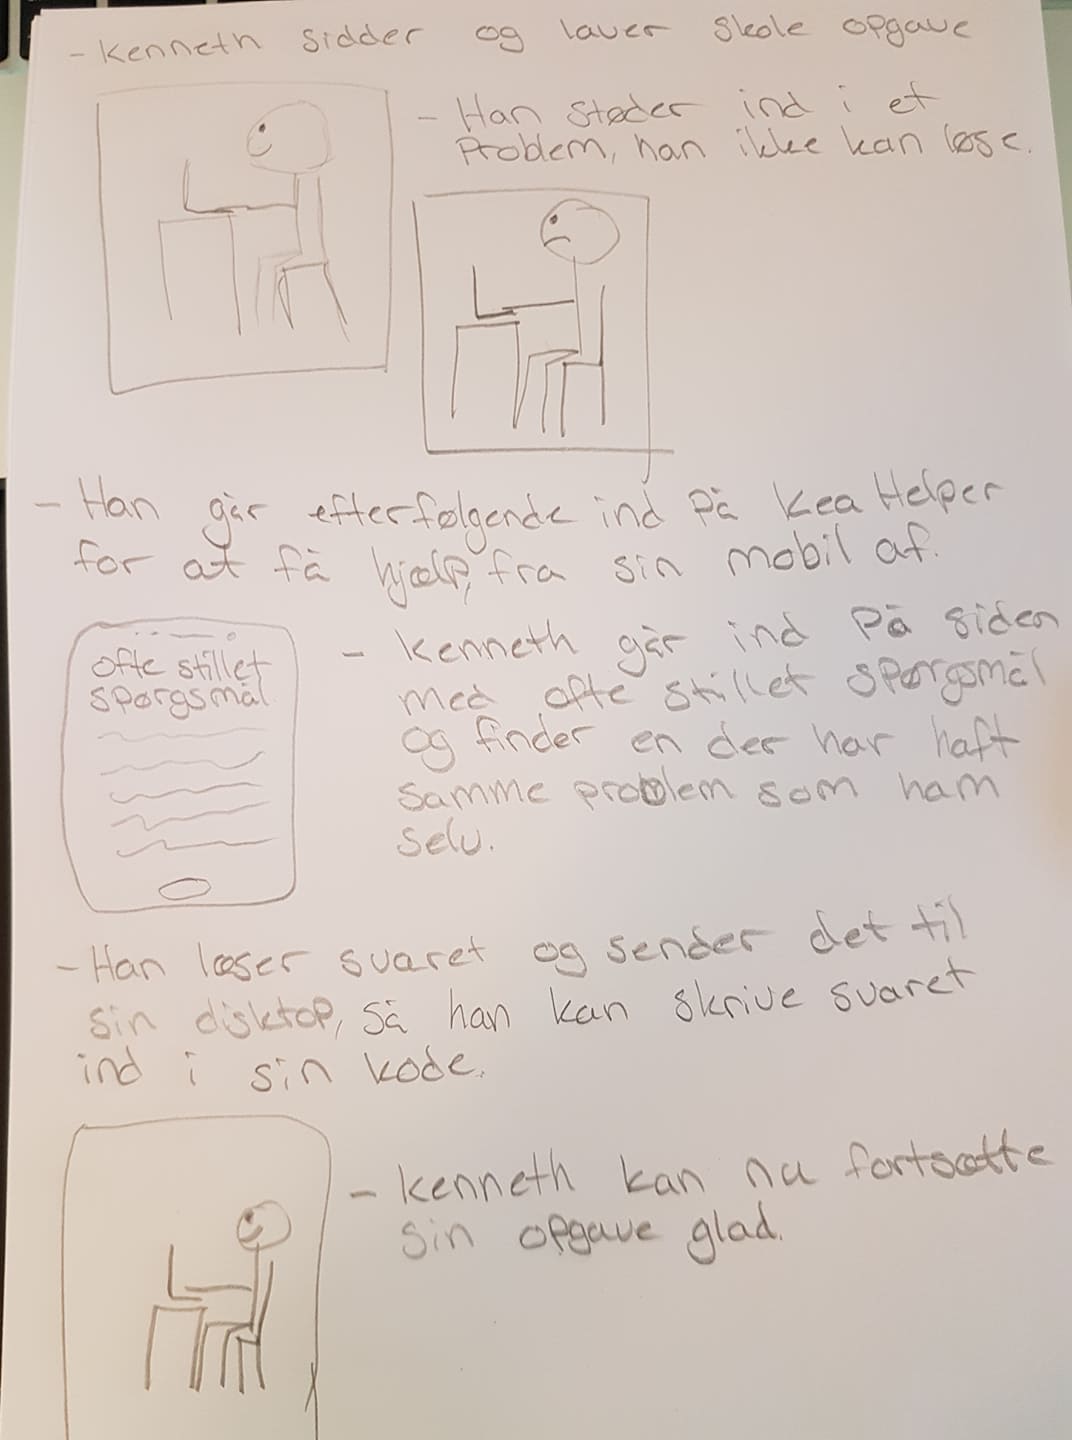 - Kenneth sidder og laver skole opgave
- Han støder ind i et
problem, han ikke kan løse.
- Han går efterfølgende ind på Kea Helper
for at få hjælp, fra sin mobil af.
ofte stillet
spørgsmål
- Kenneth går ind på siden
med ofte stillet spørgsmål
og finder en der har haft
samme problem som ham
selv.
- Han læser svaret og sender det til
sin disktop, så han kan skrive svaret
ind i sin kode.
- Kenneth kan nu fortsætte
sin opgave glad.